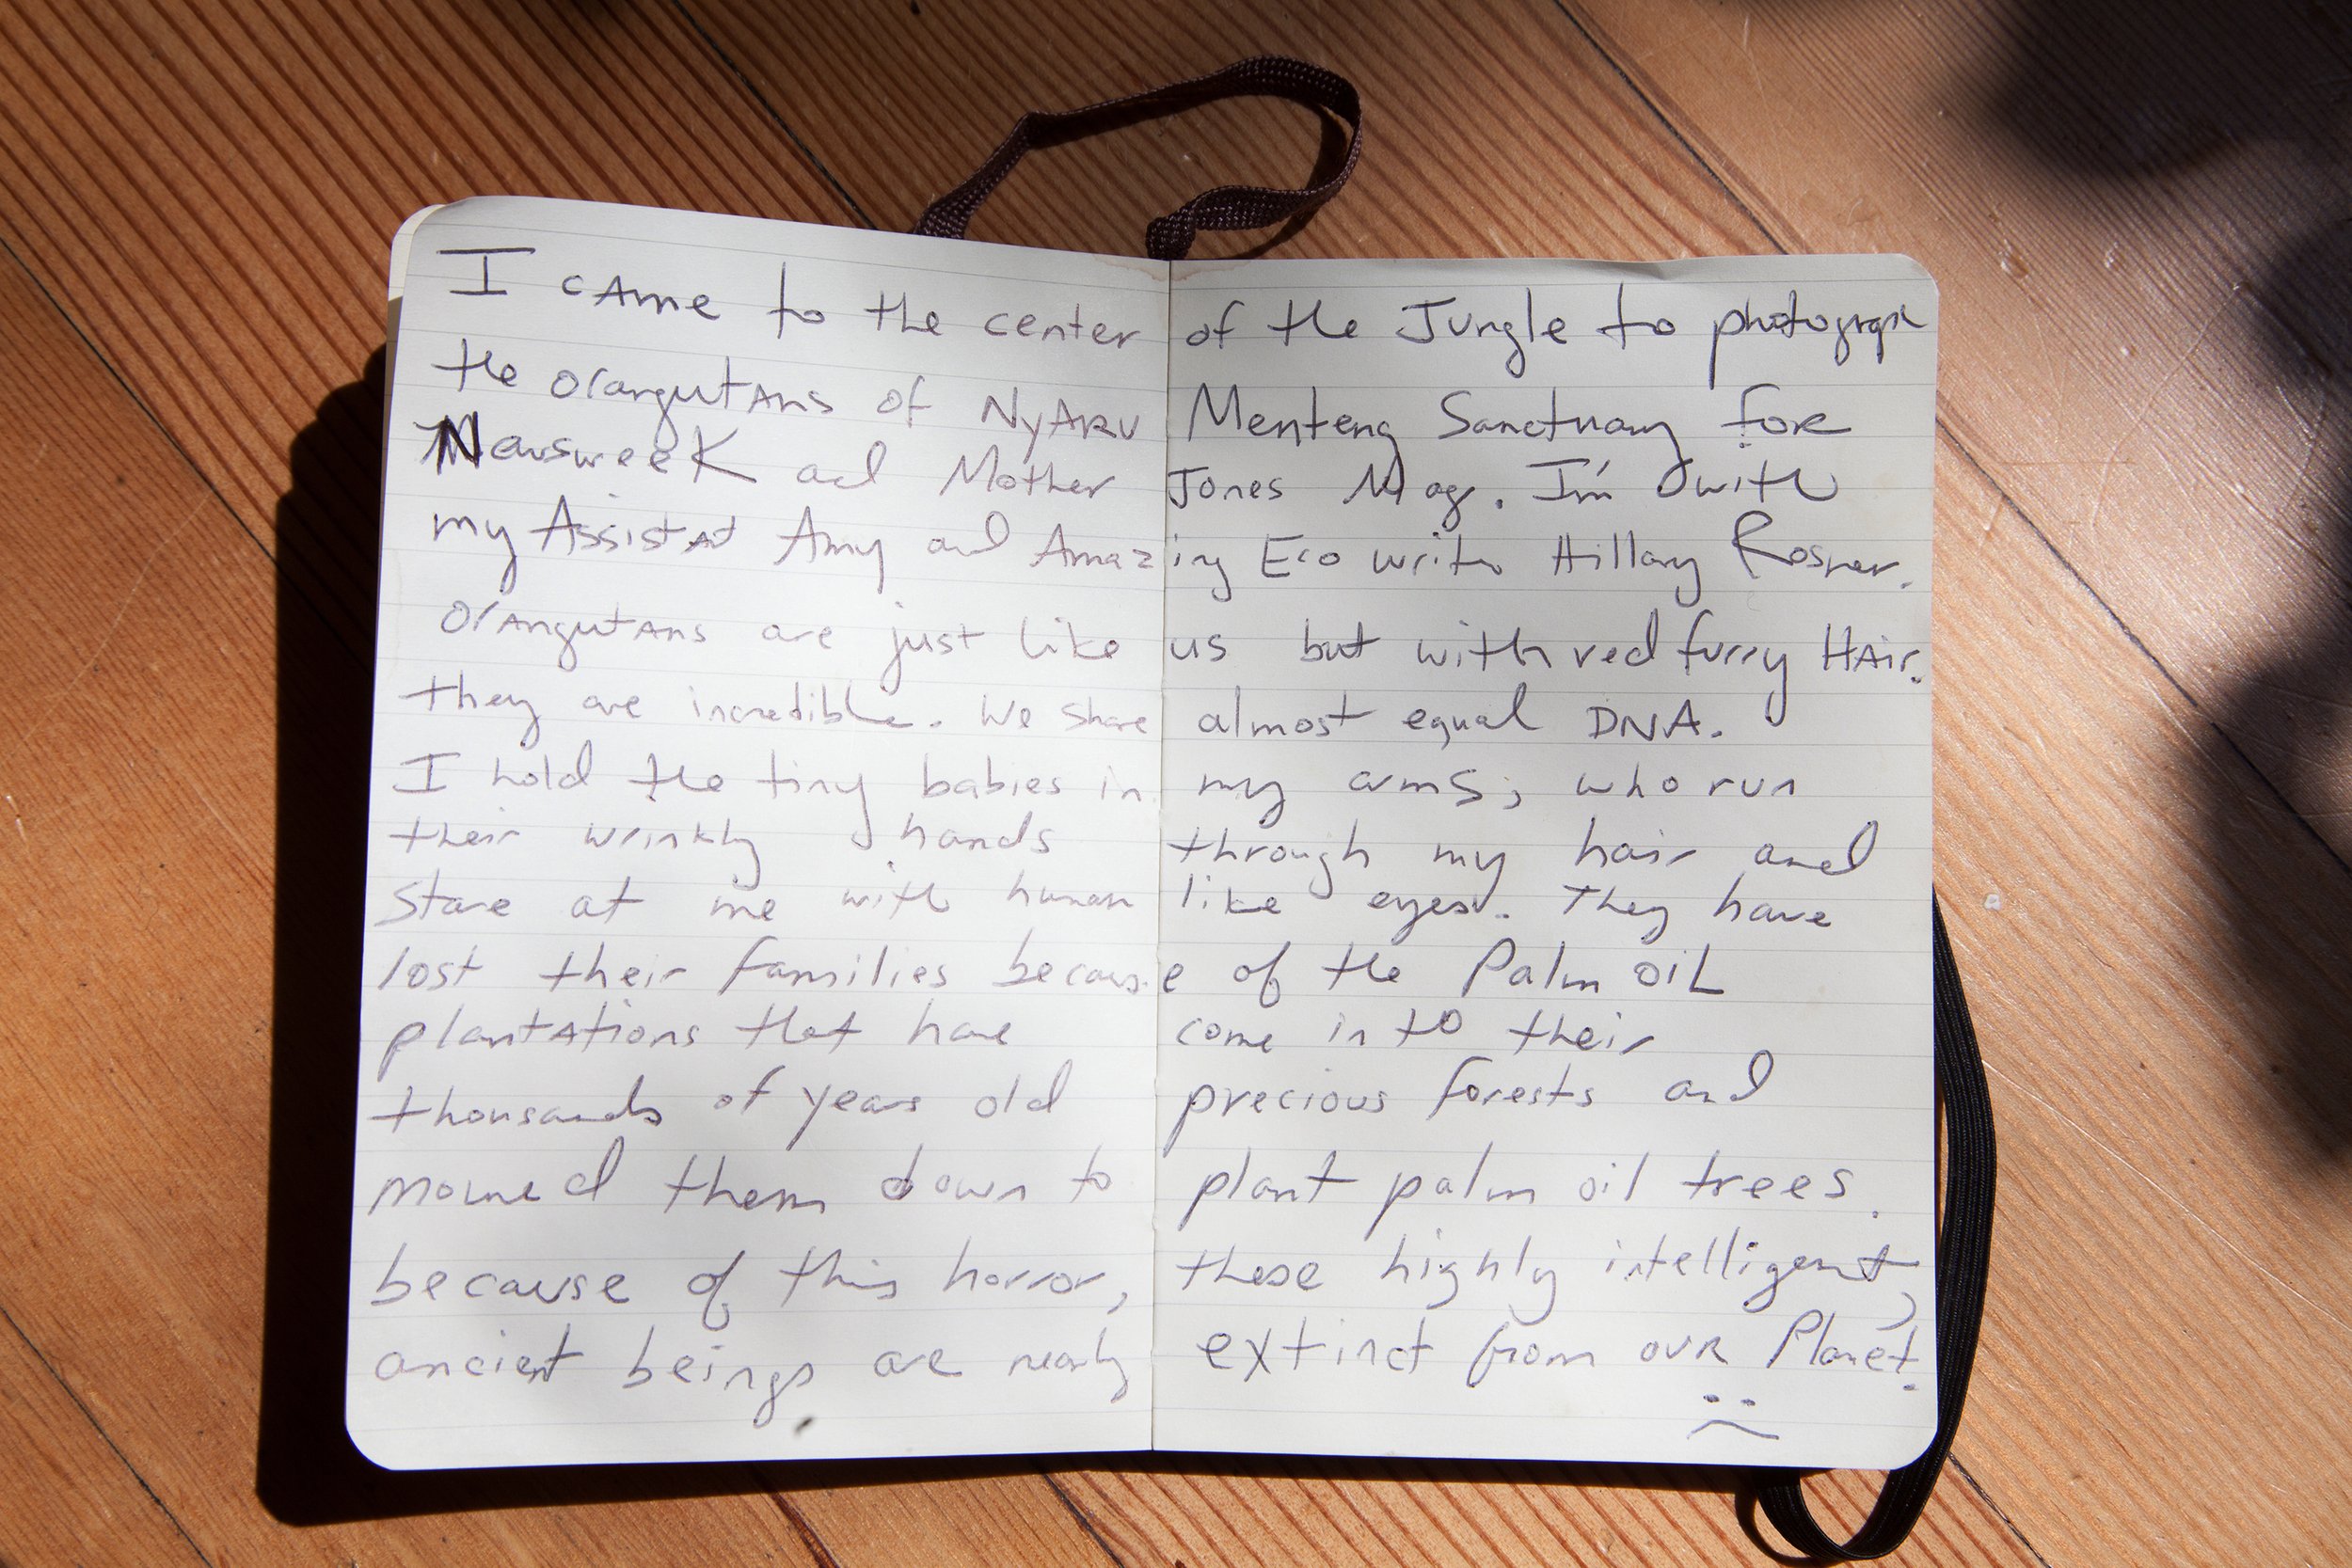 I cAme to the center of the Jungle to photograph
the orangutAns of NyARU Menteng Sanctuary foR
Newsweek and Mother Jones Mag. I'm with
my Assistat Amy and Amazing Eco writer Hillary Rosner.
OrAngutAns are just like us but with red furry HAir.
they are incredible. We share almost equal DNA.
I hold the tiny babies in my arms, who run
their wrinkly hands through my hair and
stare at me with human like eyes. They have
lost their families because of the Palm oiL
plantAtions that have come in to their
thousands of years old precious forests and
mowed them down to plant palm oil trees.
because of this horror, these highly intelligent,
ancient beings are nearly extinct from ouR Planet.